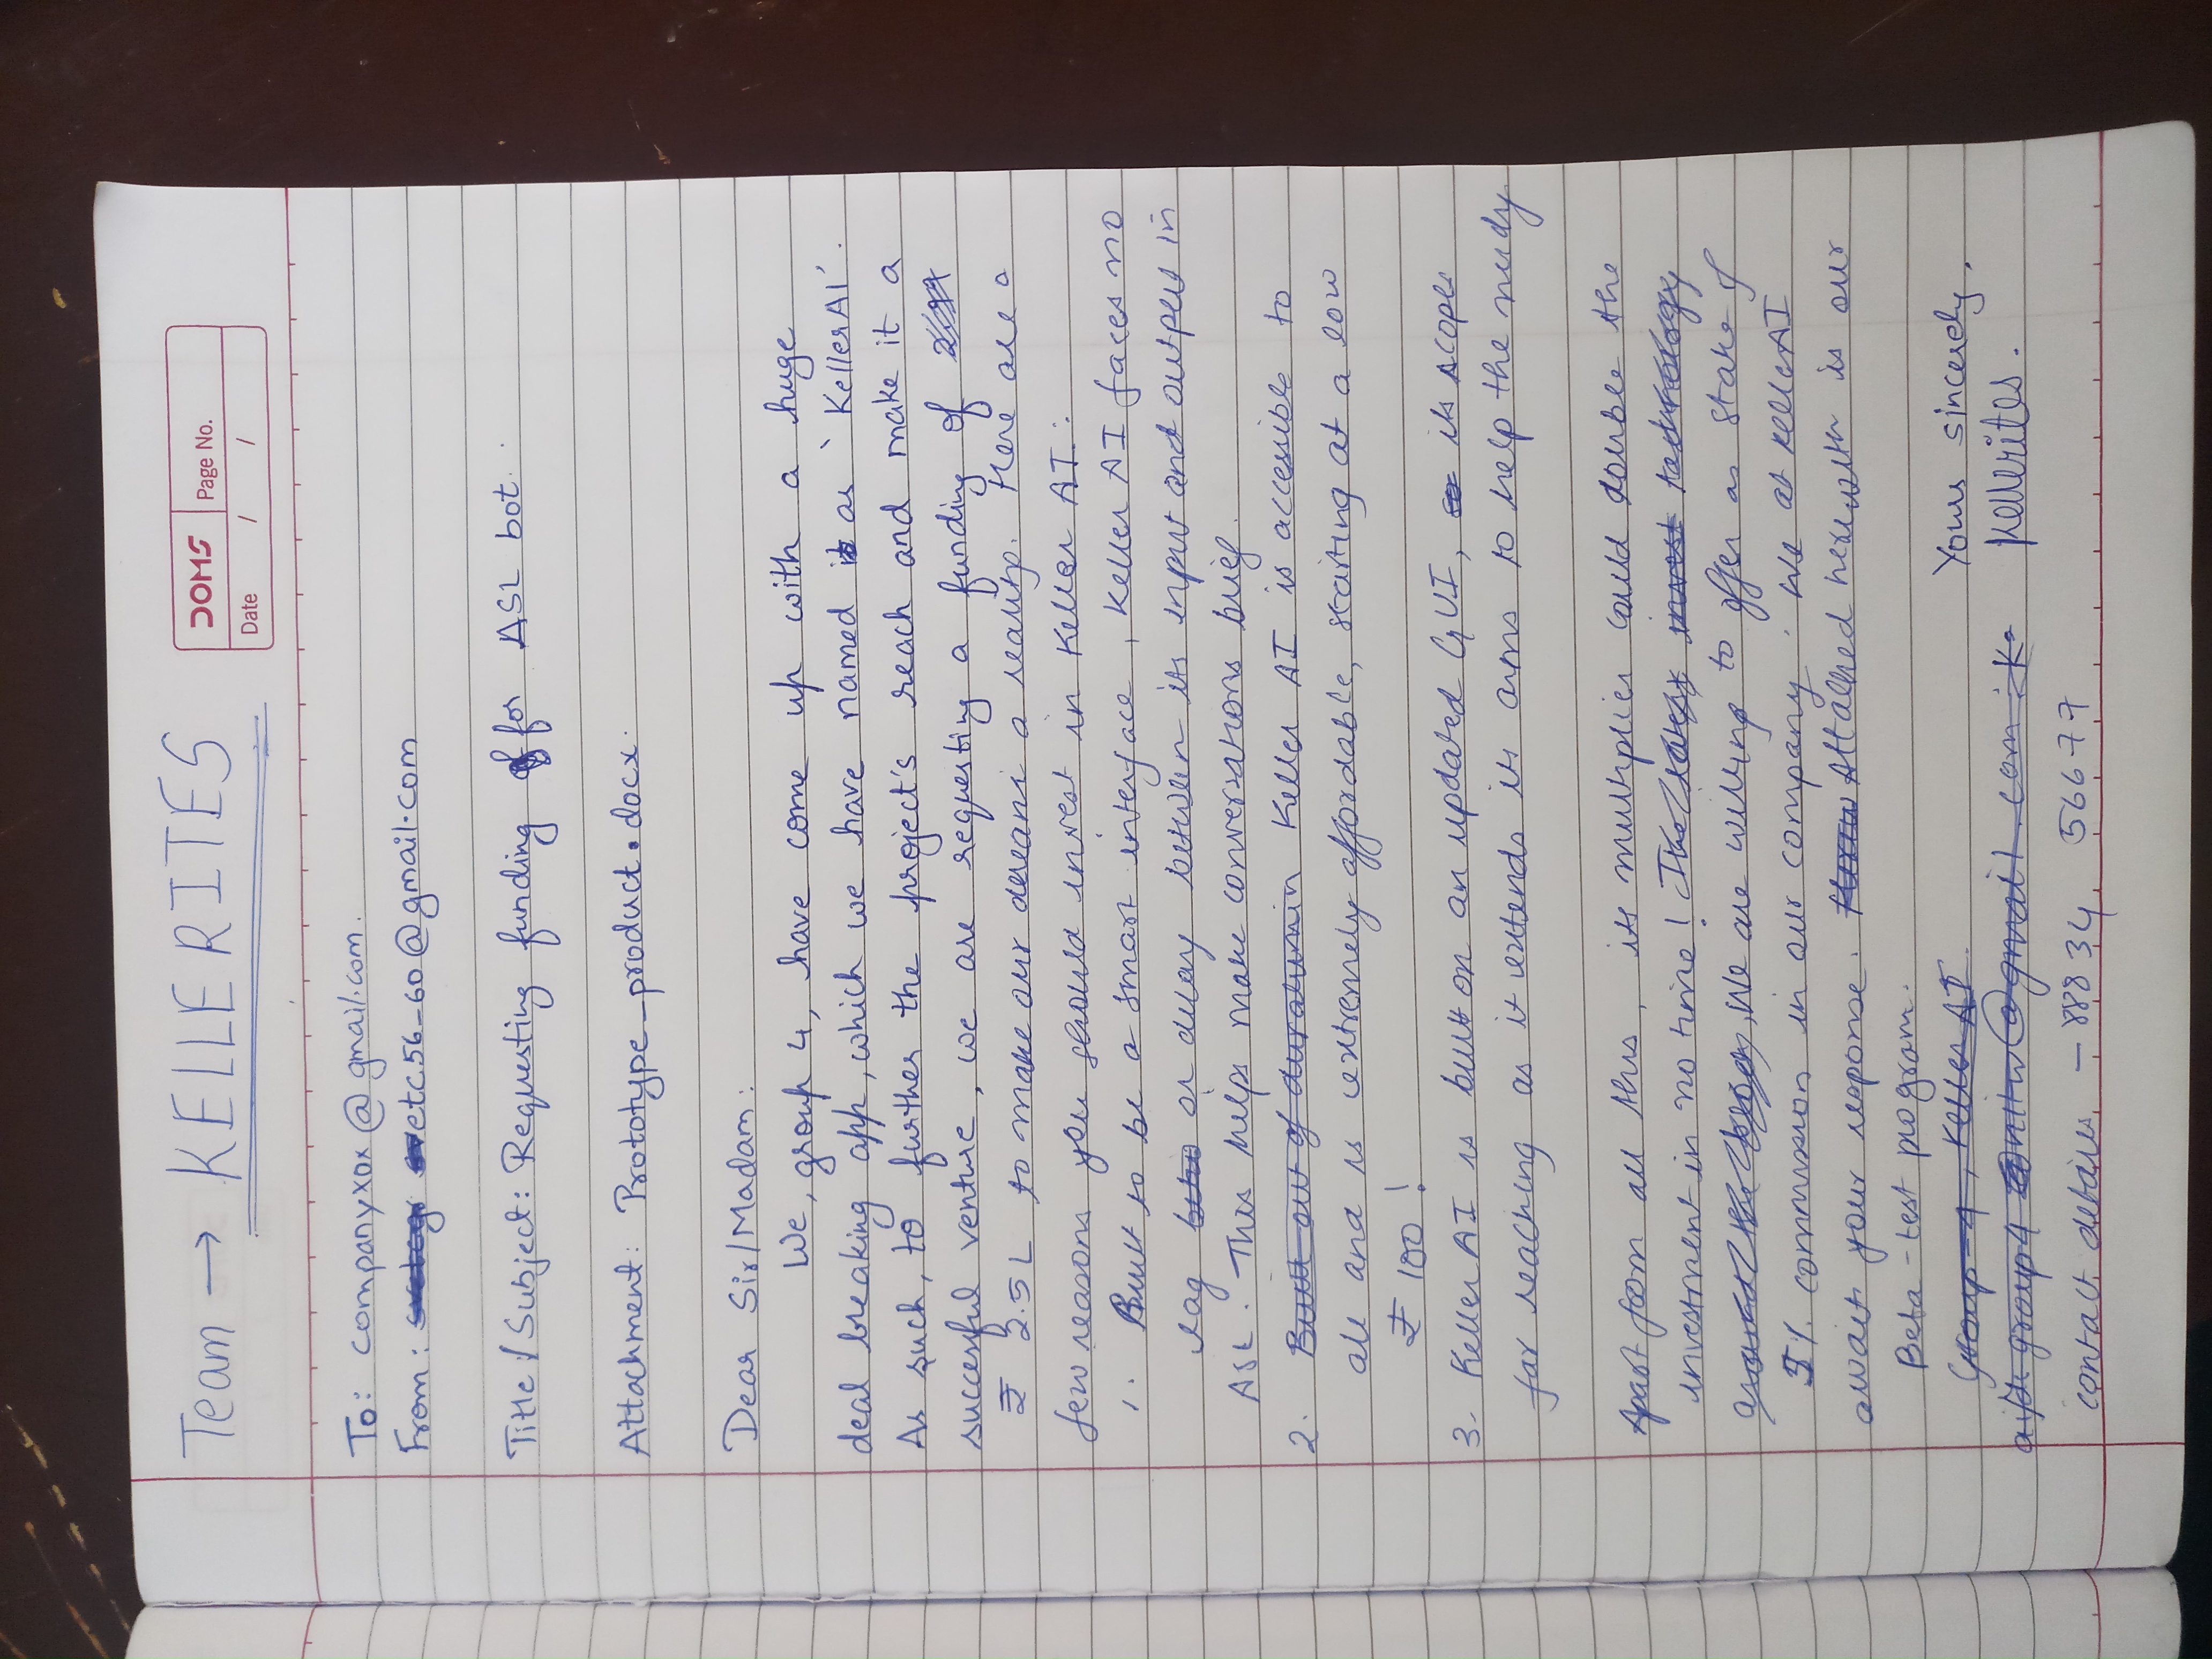 Team → KELLERITES
DOMS Page No.
Date / /
To: companyxox@gmail.com.
From: etc56-60@gmail.com
Title/Subject: Requesting funding for ASL bot.
Attachment: Prototype_product.docx.
Dear Sir/Madam:
We, group 4, have come up with a huge
deal breaking app, which we have named it as `KellerAI'.
As such, to further the project's reach and make it a
successful venture, we are requesting a funding of
₹ 2.5L to make our dream a reality. Here are a
few reasons you should invest in Keller AI:
1. Built to be a smart interface, Keller AI faces no
lag or delay between its input and output in
ASL. This helps make conversations brief.
2. Built out of duralumin Keller AI is accessible to
all and is extremely affordable, starting at a low
₹ 100!
3. Keller AI is built on an updated GUI, its scopes
far reaching as it extends its arms to help the needy
Apart from all this, its multiplier could double the
investment in no time! The latest invest technology
around the We are willing to offer as stake of
5% commission in our company. We at KellerAI
await your response. Attached herewith is our
Beta-test program.
Group-4, Keller AI
Yours sincerely,
group4 @gmail.com
Kellerites.
contact details - 88834 56677